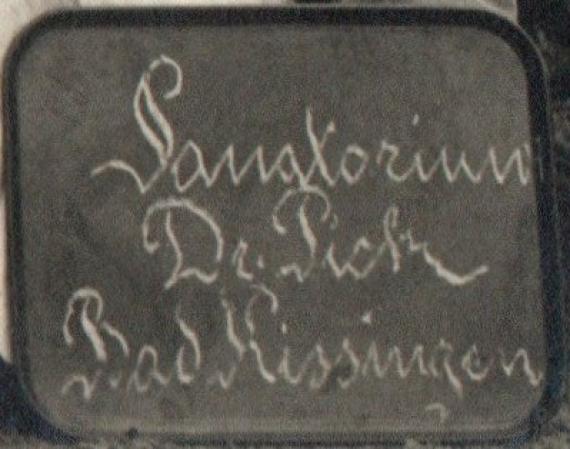 Sanatorium
Dr. Pick
Bad Kissingen